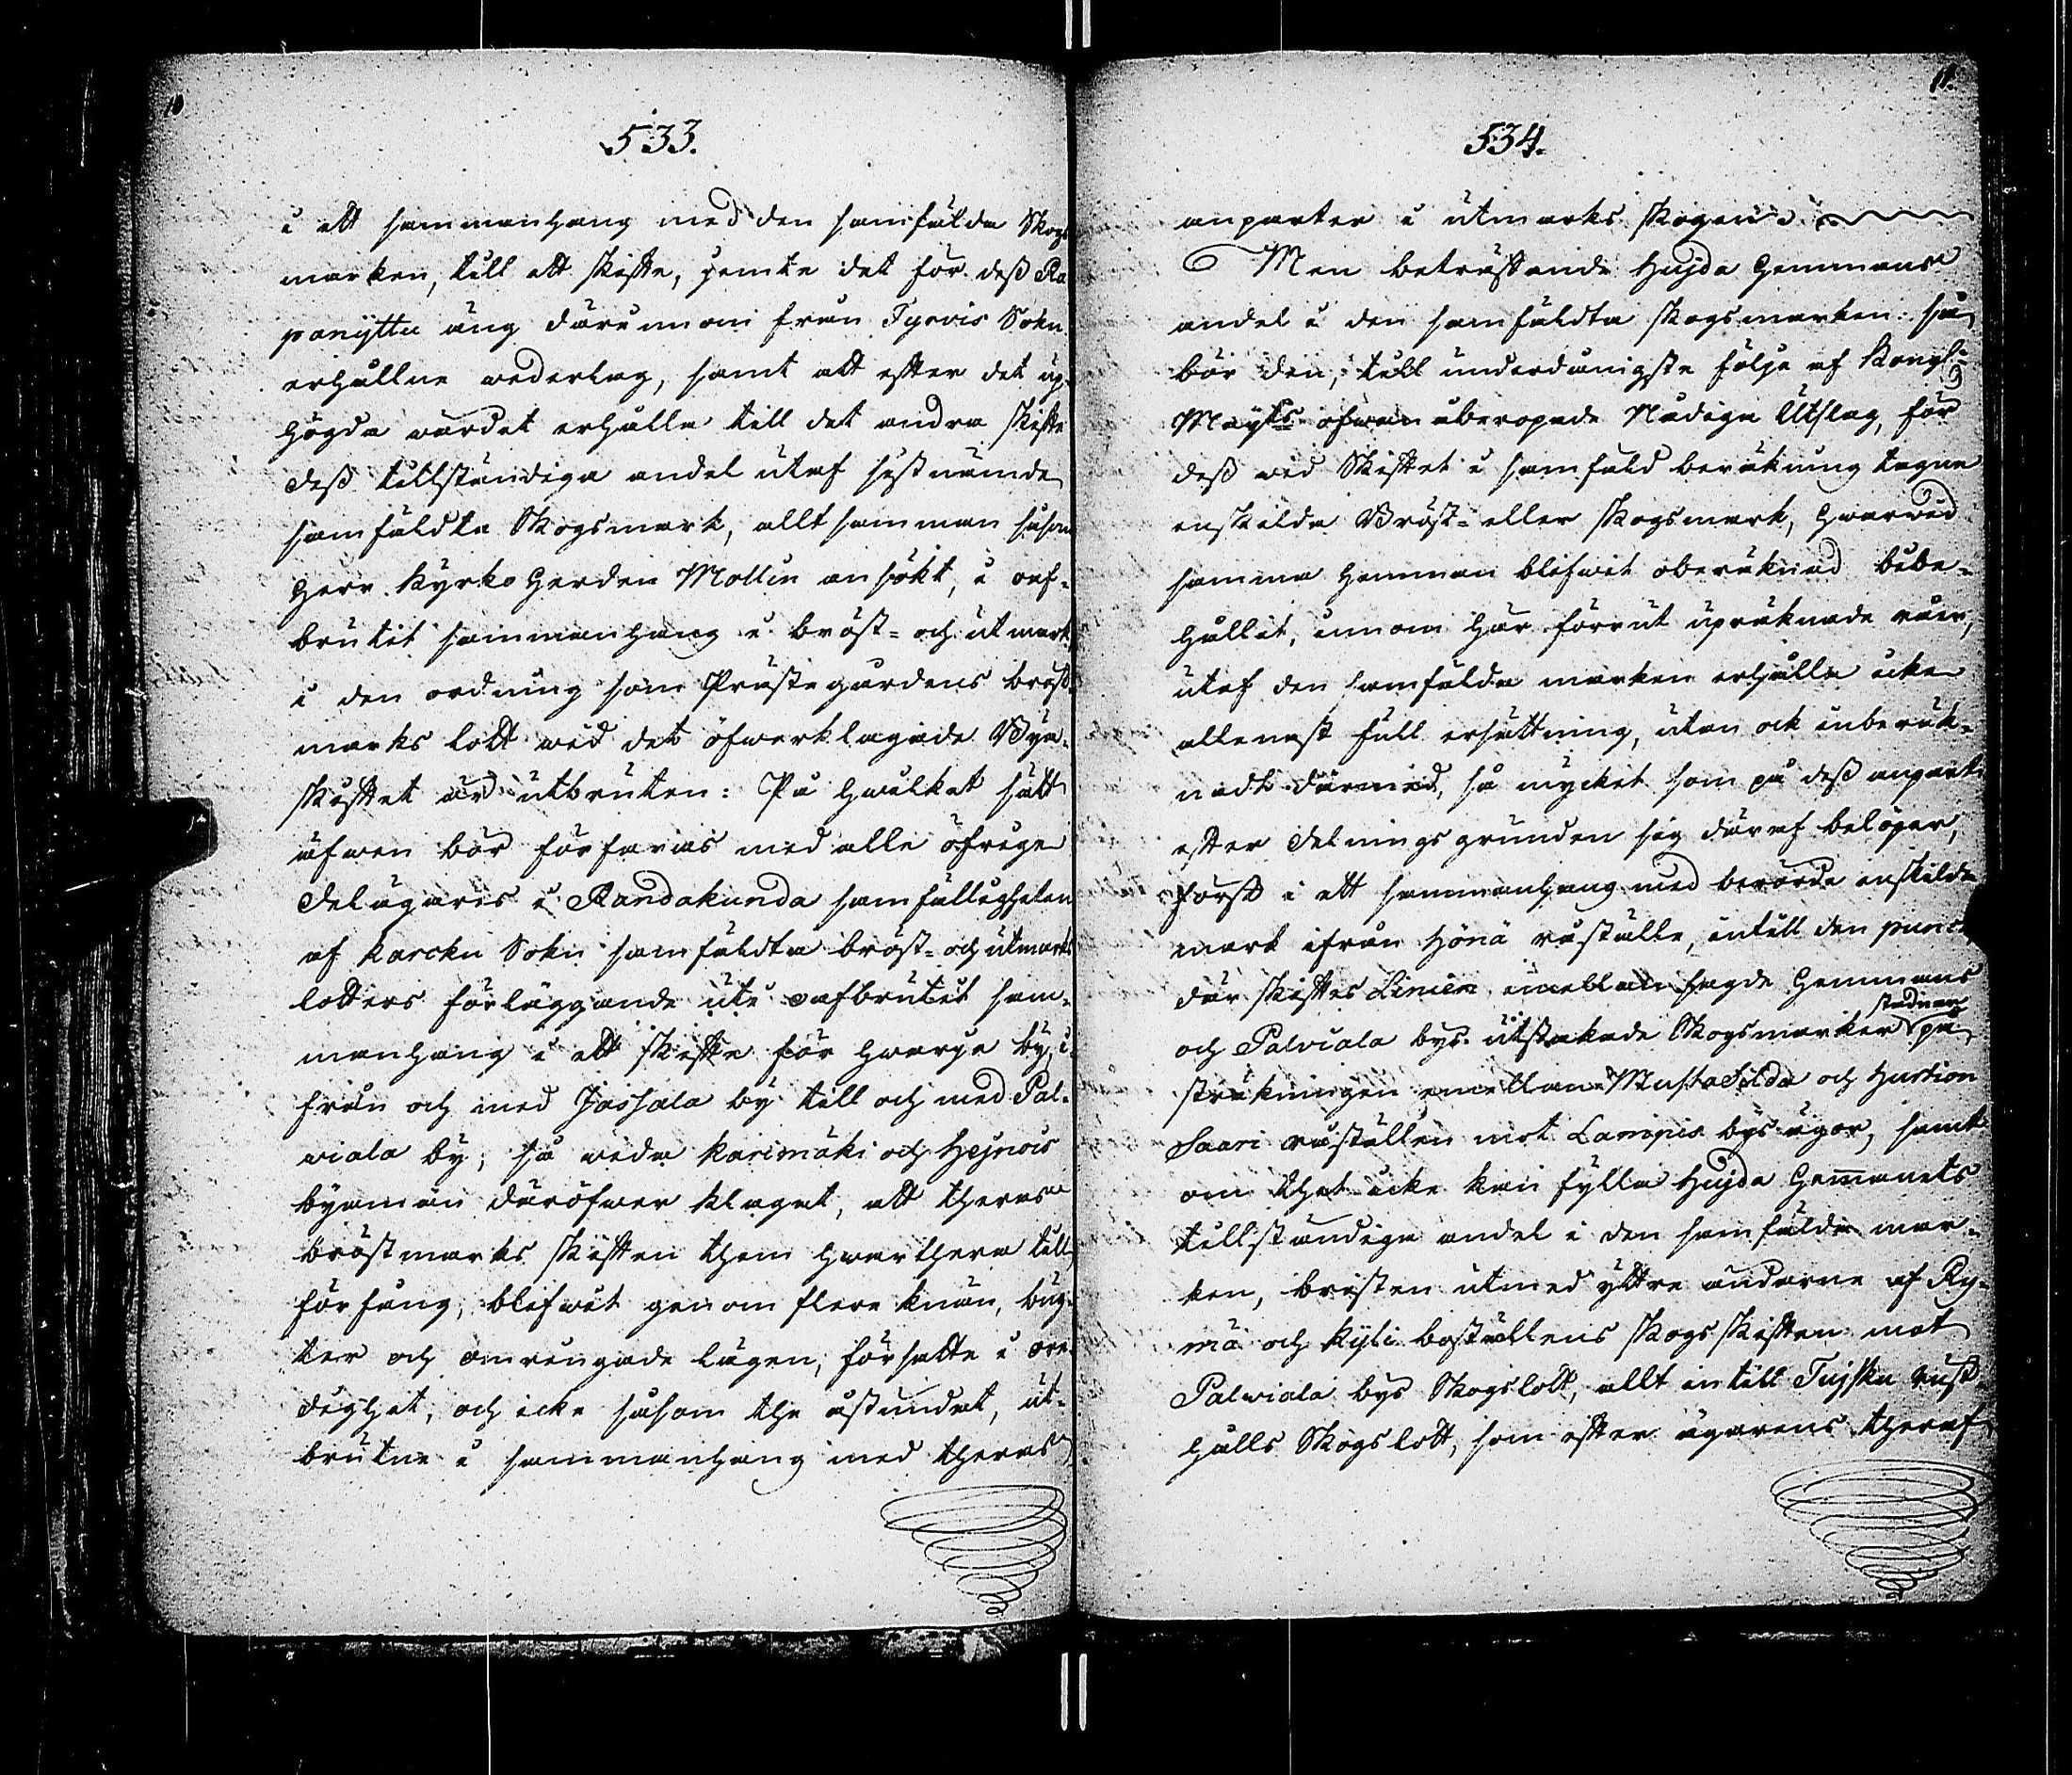 10
533.
i ett sammanhang med den samfälda Skogs
marken, till ett skifte, jemte det för dess Ra
panijttu äng därinnom från Tyrvis Sokn
erhållne wederlag, samt att efter det up-
högda wärdet erhålla till det andra skifte
dess tillständiga andel utaf sistnämde
samfäldta Skogsmark, allt samman såsom
Herr Kyrko Herden Mollin ansökt, i oaf-
brutit sammanhang i bröst- och utmark
i den ordning som Prästegårdens bröst
marks lott wid det öfwerklagade Bya-
skiftet är utbruten: På hwilket sätt
äfwen bör förfaras med alle öfrige
Delägares i Randakunda samfälligheten
af Karcku Sokn samfäldta bröst- och utmarks
lotters förläggande uti oafbrutit sam-
manhang i ett skifte för hwarje by, i-
från och med Jassala by till och med Pal-
wiala by; så wida Karimäki och Hejnois
byamän däröfwer klagat, att theras
bröstmarks skiften them hwarthera till
förfång, blifwit genom flere knän, bug-
ter och omrengade lägen, försatte i ore-
dighet, och icke såsom the åstundat, ut-
brutne i sammanhang med theras
11.
534.
anparter i utmarks skogen.
Men beträffande Hujda Hemmans
andel i den samfäldta skogsmarken: så
bör den, till underdånigste följe af Kongl:
Maij:ts ofwan åberopade Nådiga Utslag, för
dess wid Skiftet i samfäld beräkning tagne
enskilda Bröst- eller skogsmark, hwarwid
samma hemman blifwit oberäknad bibe-
hållit, innom här förrut upräknade råer,
utaf den samfälda marken erhålla icke
allenast full ersättning, utan ock inberäk-
nadt därmed, så mycket som på dess anpart
efter delningsgrunden sig däraf belöper,
först i ett sammanhang med berörde enskilda
mark ifrån Hönä råställe, intill den punct
där skiftes Linien emellan sagde Hemmans
och Palviala bys utstakade Skogsmarker stadnar på
sträkningen emellan Mustasilda och Hartion
Saari råställen mot Lampis bys ägor, samt
om thet icke kan fylla Hujda Hemanets
tillständiga andel i den samfälda mar-
ken, bristen utmed yttre ändarne af Ry-
mä och Kijli boställens skogs skiften mot
Palwiala bys Skogslott, allt intill Tujsku rust
hålls Skogslott, som efter ägarens theraf